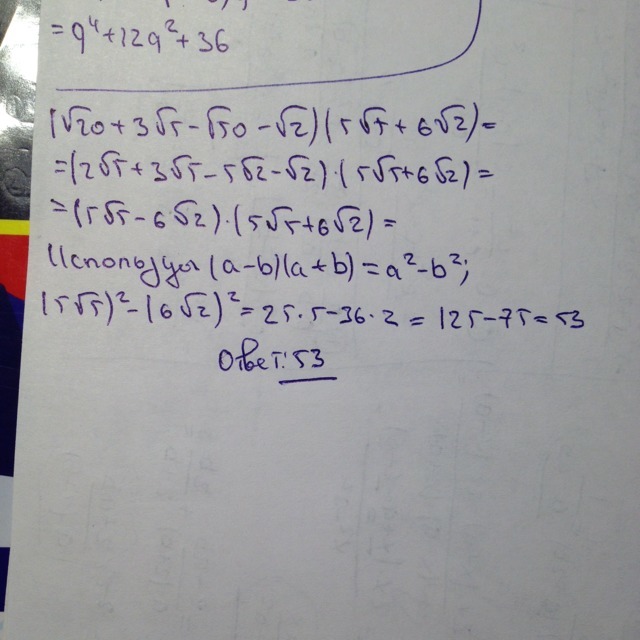 = q⁴ + 12q² + 36
(√20 + 3√5 - √50 - √2)(5√5 + 6√2) =
= (2√5 + 3√5 - 5√2 - √2) · (5√5 + 6√2) =
= (5√5 - 6√2) · (5√5 + 6√2) =
Используя (a-b)(a+b) = a² - b²;
(5√5)² - (6√2)² = 25·5 - 36·2 = 125 - 75 = 53
Ответ: 53